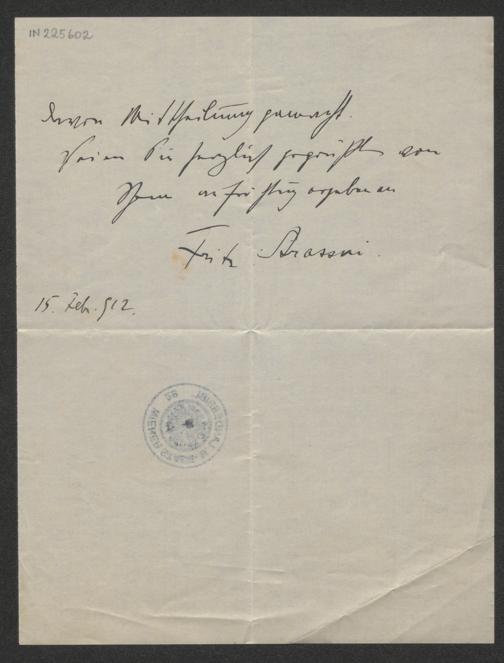 IN 225602
davon Mittheilung gemacht.
Seien Sie herzlich gegrüßt von
Ihrem aufrichtig ergebenen
Fritz
15. Feb. 912.